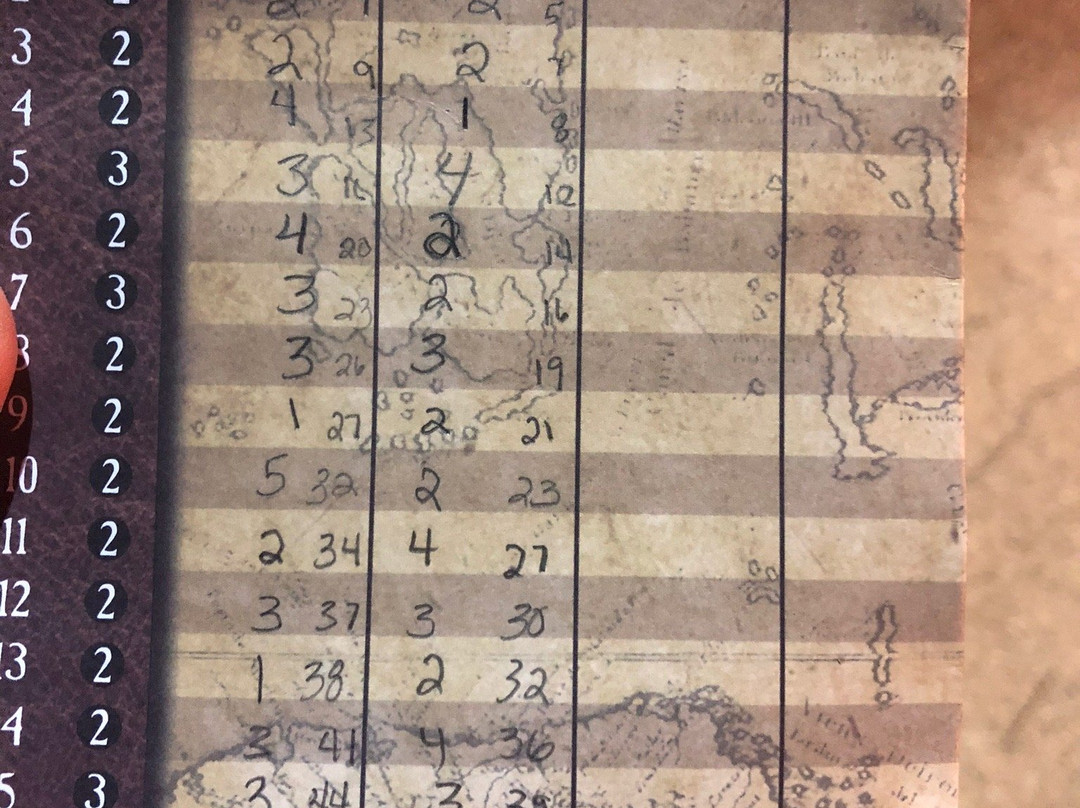 2 5
3 2 2 9 2
4 2 4 13 1 8
5 3 3 16 4 12
6 2 4 20 2 14
7 3 3 23 2 16
8 2 3 26 3 19
9 2 1 27 2 21
10 2 5 32 2 23
11 2 2 34 4 27
12 2 3 37 3 30
13 2 1 38 2 32
4 2 3 41 4 36
5 3 3 44 3